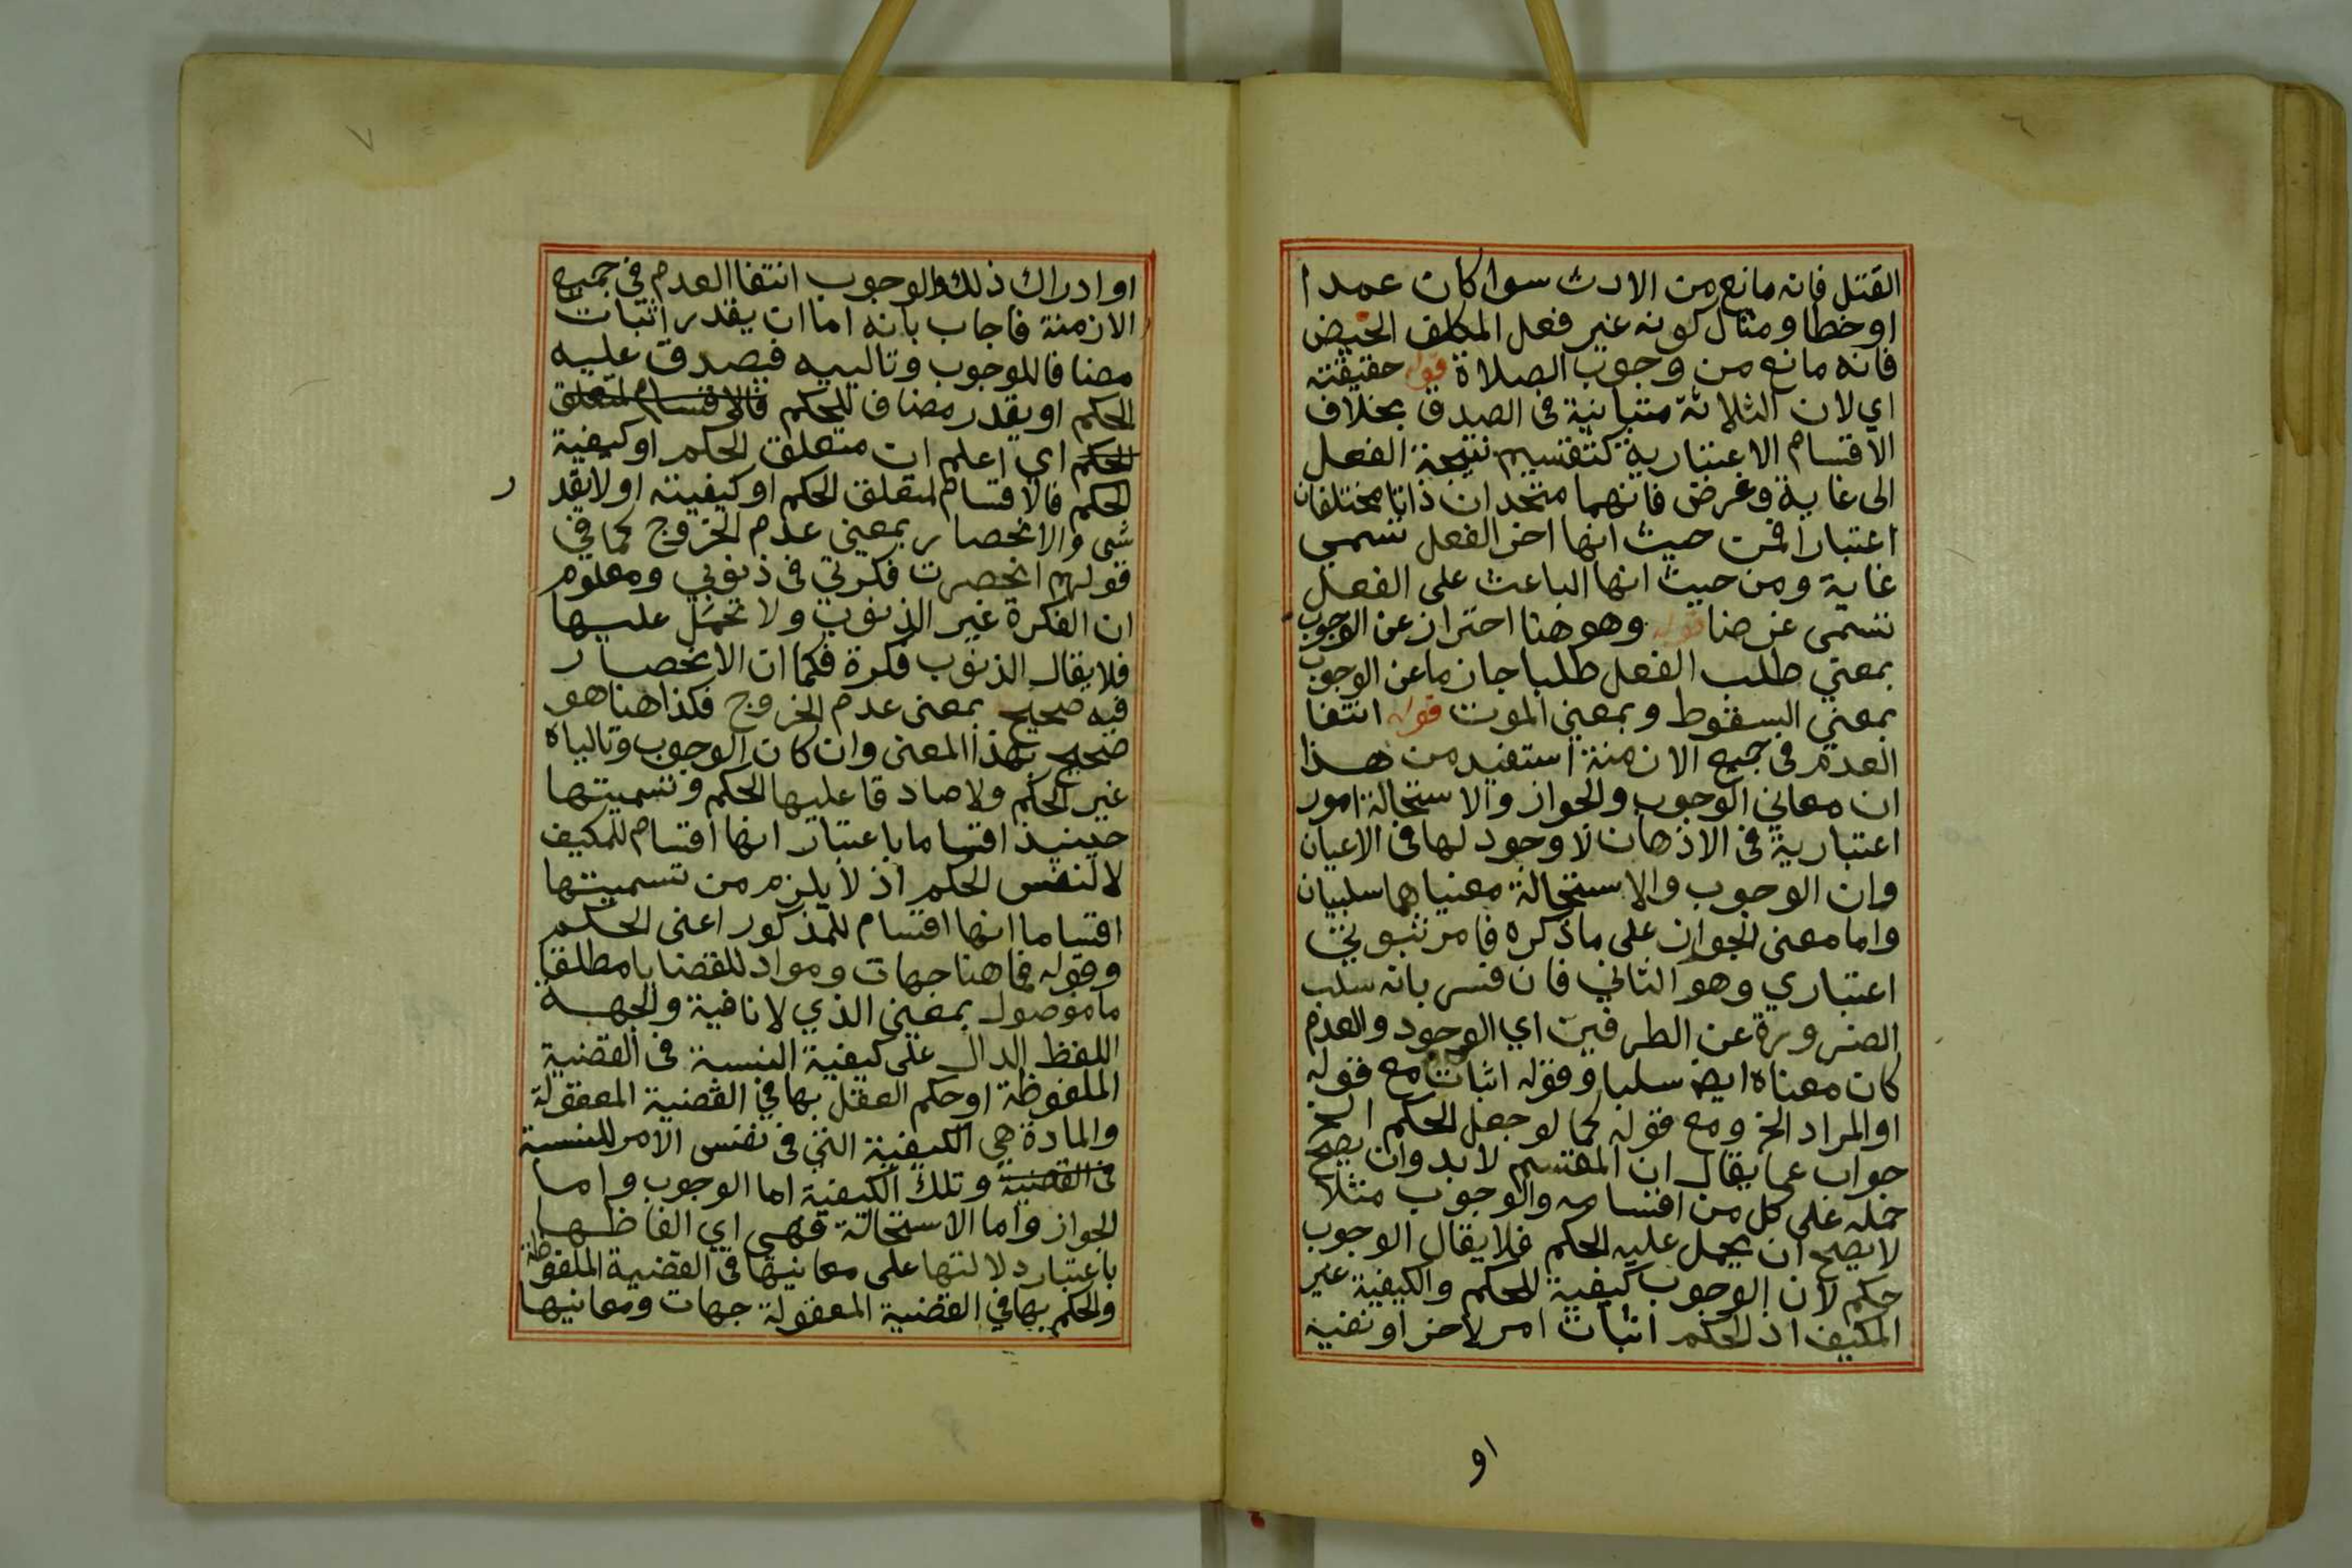 ٦
القتل فانه مانع من الارث سوا كان عمدا
او خطا ومثال كونه غير فعل المكلف الحيض
فانه مانع من وجوب الصلاة قوله حقيقته
اي لان الثلاثة متباينة في الصدق بخلاف
الاقسام الاعتبارية كتقسيم نتيجة الفعل
الى غاية وغرض فانهما متحدان ذاتا مختلفان
اعتبارا فمن حيث انها اخر الفعل تسمى
غاية ومن حيث انها الباعث على الفعل
تسمى غرضا قوله وهو هنا احتراز عن الوجوب
بمعني طلب الفعل طلبا جازما عن الوجوب
بمعني السقوط وبمعني الموت قوله انتفا
العدم في جميع الازمنة استفيد من هذا
ان معاني الوجوب والجواز والاستحالة امور
اعتبارية في الاذهان لا وجود لها في الاعيان
وان الوجوب والاستحالة معنياهما سلبيان
واما معنى الجواز على ما ذكره فامر ثبوتي
اعتباري وهو الثاني فان فسر بانه سلب
الضرورة عن الطرفين اي الوجود والعدم
كان معناه ايض سلبا وقوله اثبات مع قوله
او المراد الخ ومع قوله كما لو جعل الحكم الخ
جواب عما يقال ان المقسم لا بد وان يصح
حمله على كل من اقسامه والوجوب مثلا
لا يصح ان يحمل عليه الحكم فلا يقال الوجوب
حكم لان الوجوب كيفية للحكم والكيفية غير
المكيف اذ الحكم اثبات امر لاخر او نفيه
او
٧
او ادراك ذلك والوجوب انتفا العدم في جميع
الازمنة فاجاب بانه اما ان يقدر اثبات
مضافا للوجوب وتالييه فيصدق عليه
الحكم او يقدر مضاف للحكم فالاقسام لمتعلق
الحكم اي اعلم ان متعلق الحكم او كيفية
الحكم فالاقسام لمتعلق الحكم او كيفيته او لا يقدر
شي والانحصار بمعنى عدم الخروج كما في
قولهم انحصرت فكرتي في ذنوبي ومعلوم
ان الفكرة غير الذنوب ولا تحمل عليها
فلا يقال الذنوب فكرة فكما ان الانحصار
فيه صحيح بمعنى عدم الخروج فكذا هنا هو
صحيح بهذا المعنى وان كان الوجوب وتالياه
غير الحكم ولا صادقا عليها الحكم وتسميتها
حينيذ اقساما باعتبار انها اقسام للمكيف
لا لنفس الحكم اذ لا يلزم من تسميتها
اقساما انها اقسام للمذكور اعنى الحكم
وقوله فما هنا جهات ومواد للقضايا مطلقا
ما موصول بمعنى الذي لا نافية والجهة
اللفظ الدال على كيفية النسبة في القضية
الملفوظة او حكم العقل بها في القضية المعقولة
والمادة هي الكيفية التي في نفس الامر للنسبة
في القضية وتلك الكيفية اما الوجوب واما
الجواز واما الاستحالة فهي اي الفاظها
باعتبار دلالتها على معانيها في القضية الملفوظة
والحكم بها في القضية المعقولة جهات ومعانيها